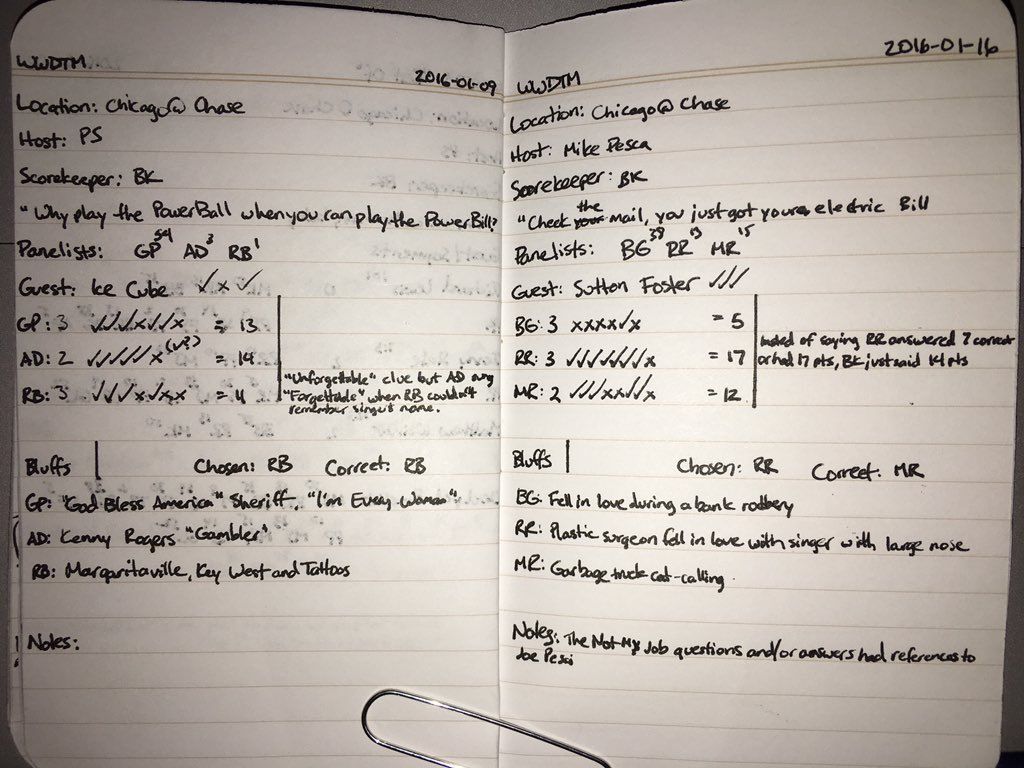 WWDTM
2016-01-09
Location: Chicago @ Chase
Host: PS
Scorekeeper: BK
"Why play the PowerBall when you can play the PowerBill?
Panelists: GP54 AD3 RB1
Guest: Ice Cube ✓ x ✓
GP: 3 ✓✓✓x✓✓x = 13
AD: 2 ✓✓✓✓x (✓?) = 14
RB: 3 ✓✓✓x✓xx = 11
"Unforgettable" clue but AD sung
"Forgettable" when RB couldn't
remember singer's name.
Bluffs Chosen: RB Correct: RB
GP: "God Bless America" Sheriff, "I'm Every Woman"
AD: Kenny Rogers "Gambler"
RB: Margaritaville, Key West and Tattoos
Notes:
2016-01-16
WWDTM
Location: Chicago @ Chase
Host: Mike Pesca
Scorekeeper: BK
"Check your the mail, you just got your electric Bill
Panelists: BG38 RR13 MR15
Guest: Sutton Foster ✓✓✓
BG: 3 xxxx✓x = 5
RR: 3 ✓✓✓✓✓✓✓x = 17
MR: 2 ✓✓✓xx✓✓x = 12
Instead of saying RR answered 7 correct
or had 17 pts, BK just said 14 pts
Bluffs Chosen: RR Correct: MR
BG: Fell in love during a bank robbery
RR: Plastic surgeon fell in love with singer with large nose
MR: Garbage truck cat-calling
Notes: The Not My Job questions and/or answers had references to
Joe Pesci